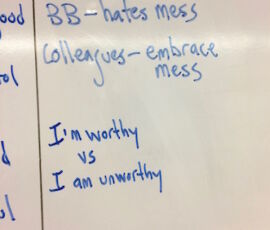 ood
BB - hates mess
Colleagues - embrace
mess
ol
I'm worthy
vs
I am unworthy
d
ol